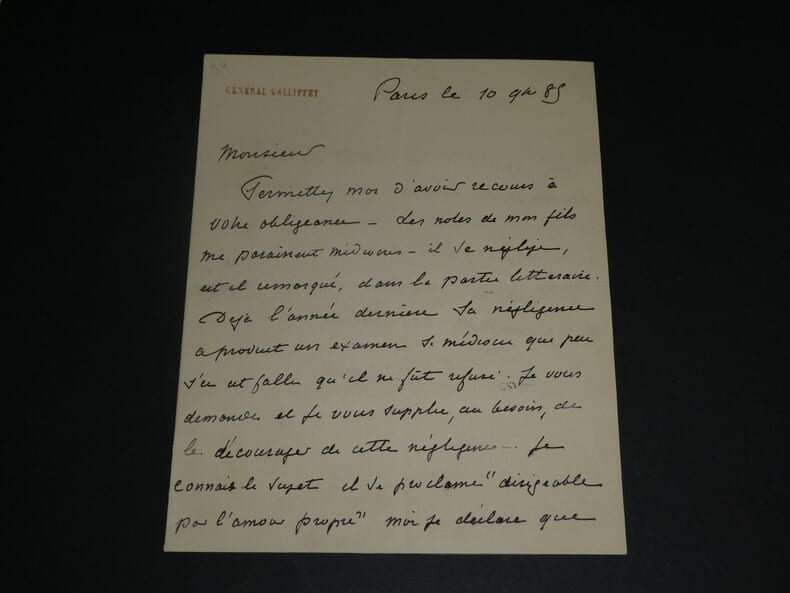 GÉNÉRAL GALLIFFET
Paris le 10 9bre 85
Monsieur
Permettez moi d'avoir recours à
votre obligeance – Les notes de mon fils
me paraissent médiocres – il se néglige,
est il remarqué, dans la partie litteraire.
Deja l'année derniere sa négligence
a produit un examen si médiocre que peu
s'en est fallu qu'il ne fût refusé. Je vous
demande et je vous supplie, au besoin, de
le décourager de cette négligence – je
connais le sujet il se proclame "dirigeable
par l'amour propre" moi je déclare que